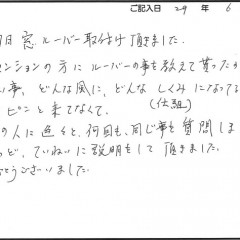 ご記入日 29 年 6
日 窓 ルーバー取付け頂きました.
ンションの方にルーバーの事を教えて貰ったが
い事、どんな風に、どんなしくみになってる
(仕組)
ピンと来てなくて.
の人に色々と、何回も、同じ事を質問しま
ど、ていねいに説明をして頂きました.
とうございました.